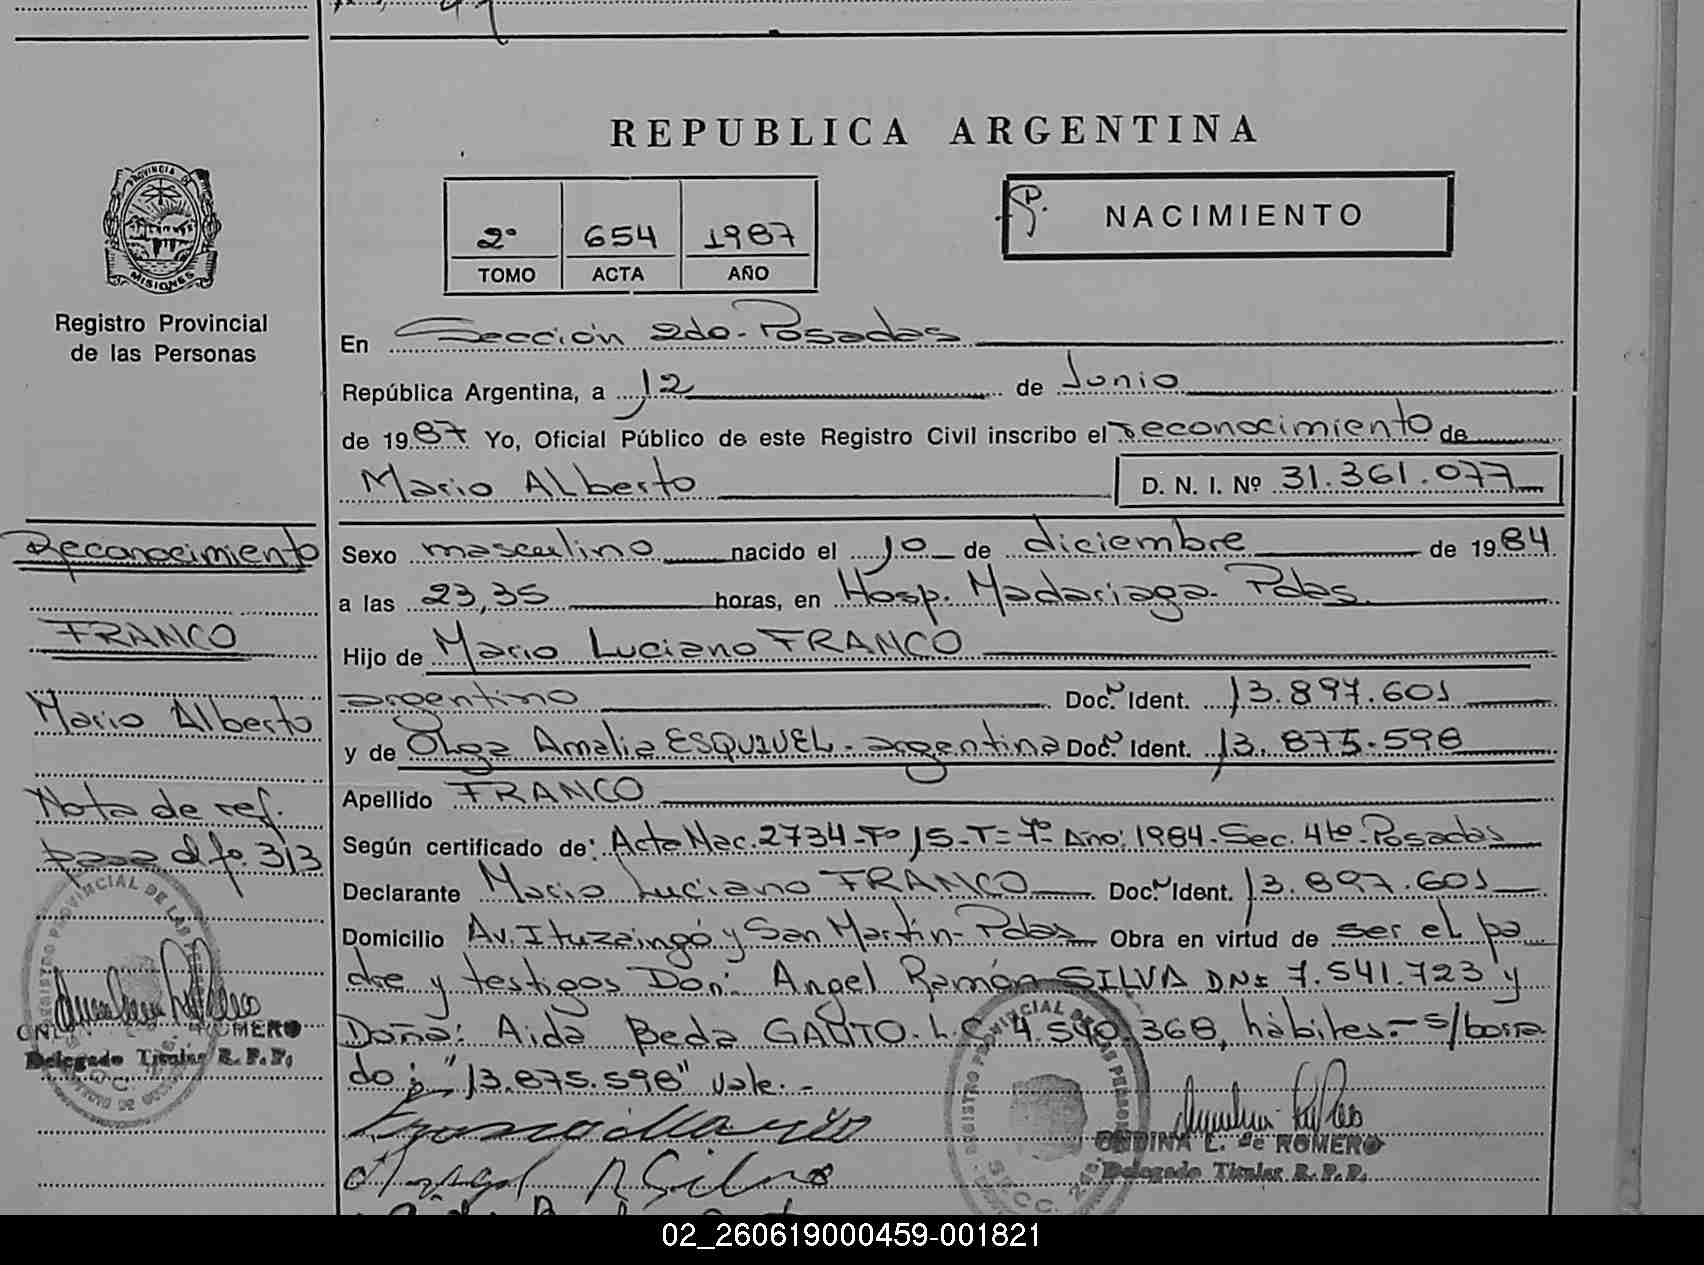 REPUBLICA ARGENTINA
PROVINCIA DE
MISIONES
Registro Provincial
de las Personas
2º 654 1987
TOMO ACTA AÑO
P. NACIMIENTO
En Sección 2do-Posadas
República Argentina, a 12 de Junio
de 1987 Yo, Oficial Público de este Registro Civil inscribo el reconocimiento de
Mario Alberto D. N. I. Nº 31.361.077
Reconocimiento
FRANCO
Mario Alberto
Nota de ref.
pasa al fº. 313
Sexo masculino nacido el 10 de diciembre de 1984
a las 23,35 horas, en Hosp. Madariaga- Pdas.
Hijo de Mario Luciano FRANCO
argentino Docº Ident. 13.897.601
y de Olga Amalia ESQUIVEL- argentina Docº Ident. 13.875.598
Apellido FRANCO
Según certificado de: Acta Nac. 2734-Fº 15-T= 7º Año: 1984-Sec. 4to-Posadas
Declarante Mario Luciano FRANCO Docº Ident. 13.897.601
Domicilio Av. Ituzaingó y San Martín-Pdas Obra en virtud de ser el pa
dre y testigos Don: Angel Ramón SILVA DNI 7.541.723 y
Doña: Aida Beda GAUTO. L.C 4.540.368, hábiles.- s/borra
do: "13.875.598" vale.-
Franco Mario
Angel R Silva
REGISTRO PROVINCIAL DE LAS PERSONAS
ROMERO
Delegado Titular R. P. P.
REGISTRO PROVINCIAL DE LAS PERSONAS
SECC. 2da.
ONDINA L. de ROMERO
Delegado Titular R. P. P.
02_260619000459-001821